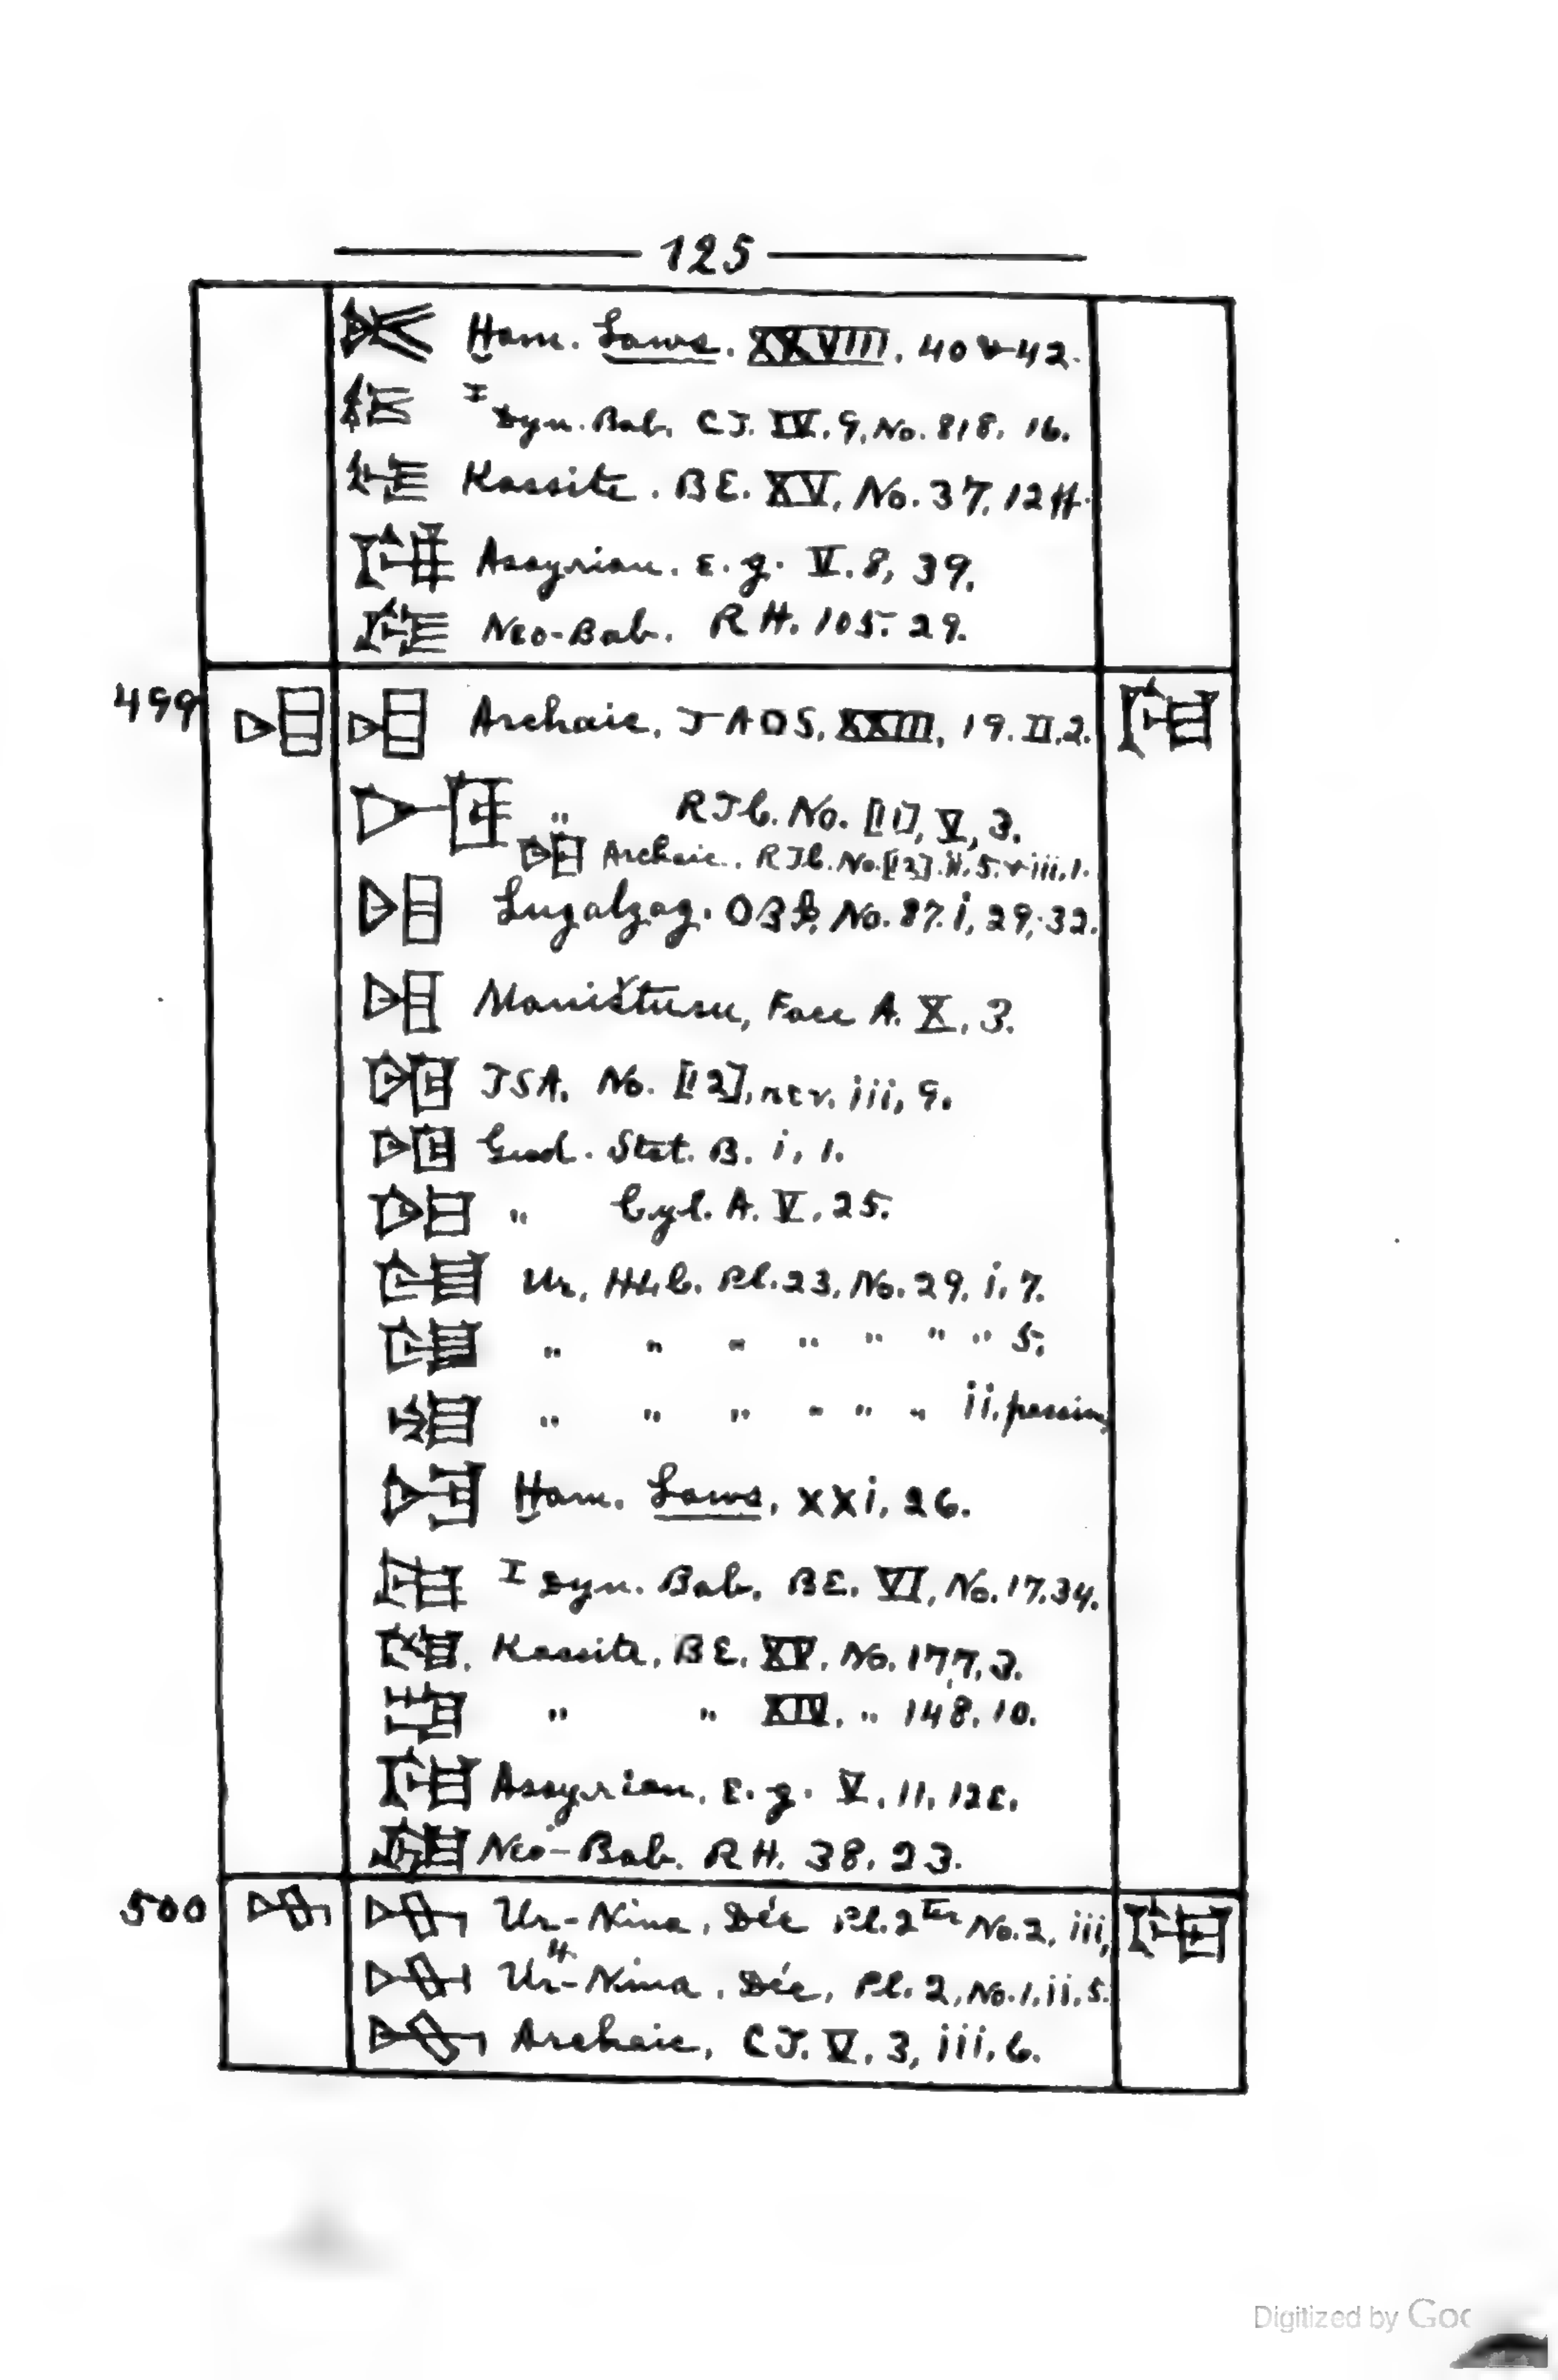 125
Ḫam. Laws. XXVIII. 40 & 42.
I Dyn. Bab. CT. IV. 9, No. 818. 16.
Kassite. BE. XV, No. 37, 12 ff.
Assyrian. E.g. V. 8, 39.
Neo-Bab. RH. 105. 29.
499 Archaic, JAOS, XXIII, 19. II. 2.
" RTC. No. [11], V, 3.
Archaic. RTC. No. [13]. ii. 5. & iii. 1.
Lugalzag. OBI, No. 87. i, 29, 32.
Maništusu, Face A. X, 3.
TSA. No. [12], rev. iii, 9.
Gud. Stat. B. i, 1.
" Cyl. A. V. 25.
Ur, HLC. Pl. 23, No. 29. i. 7.
" " " " " " " 5.
" " " " " " ii. passim
Ḫam. Laws, xxi, 26.
I Dyn. Bab. BE. VI, No. 17. 34.
Kassite, BE. XV. No. 177. 3.
" " XIV. " 148. 10.
Assyrian, E.g. V. 11. 12 E.
Neo-Bab. RH. 38. 23.
500 Ur-Nina, Déc Pl. 2 ter No. 2, iii, 4.
Ur-Nina. Déc, Pl. 2, No. 1. ii. 5.
Archaic, CT. V. 3, iii. 6.
Digitized by Goo